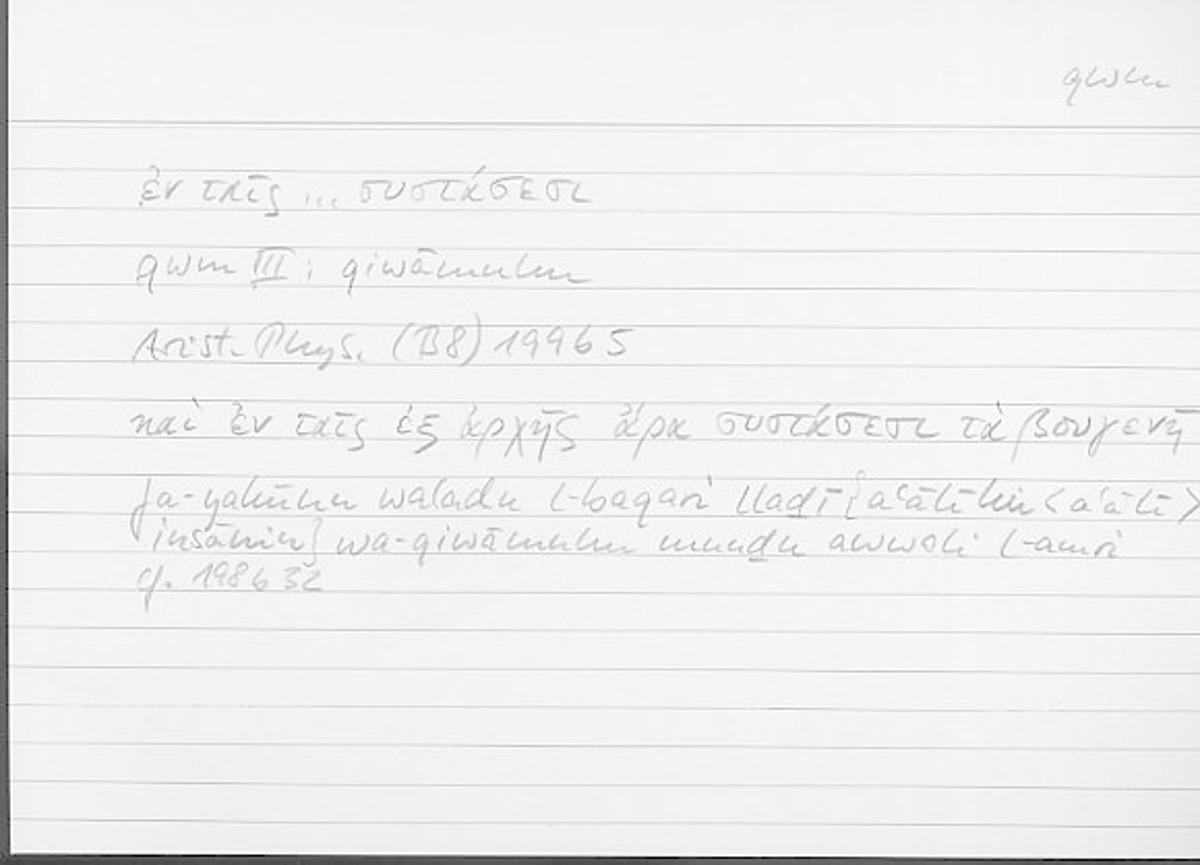 qwm
ἐν ταῖς ... συστάσεσι
qwm III: qiwāmuhu
Arist. Phys. (B8) 199b5
καὶ ἐν ταῖς ἐξ ἀρχῆς ἄρα συστάσεσι τὰ βουγενῆ
fa-yakūnu waladu l-baqari lladī [aʿālīhi <aʿālī>
insānin] wa-qiwāmuhu munḏu awwali l-amri
cf. 198b32